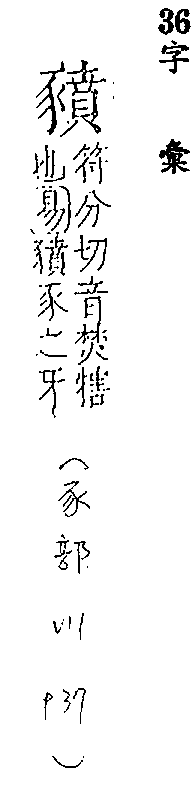 36字彙
豶
符分切音焚犗
也易豶豕之牙
（豕部 VII P37）